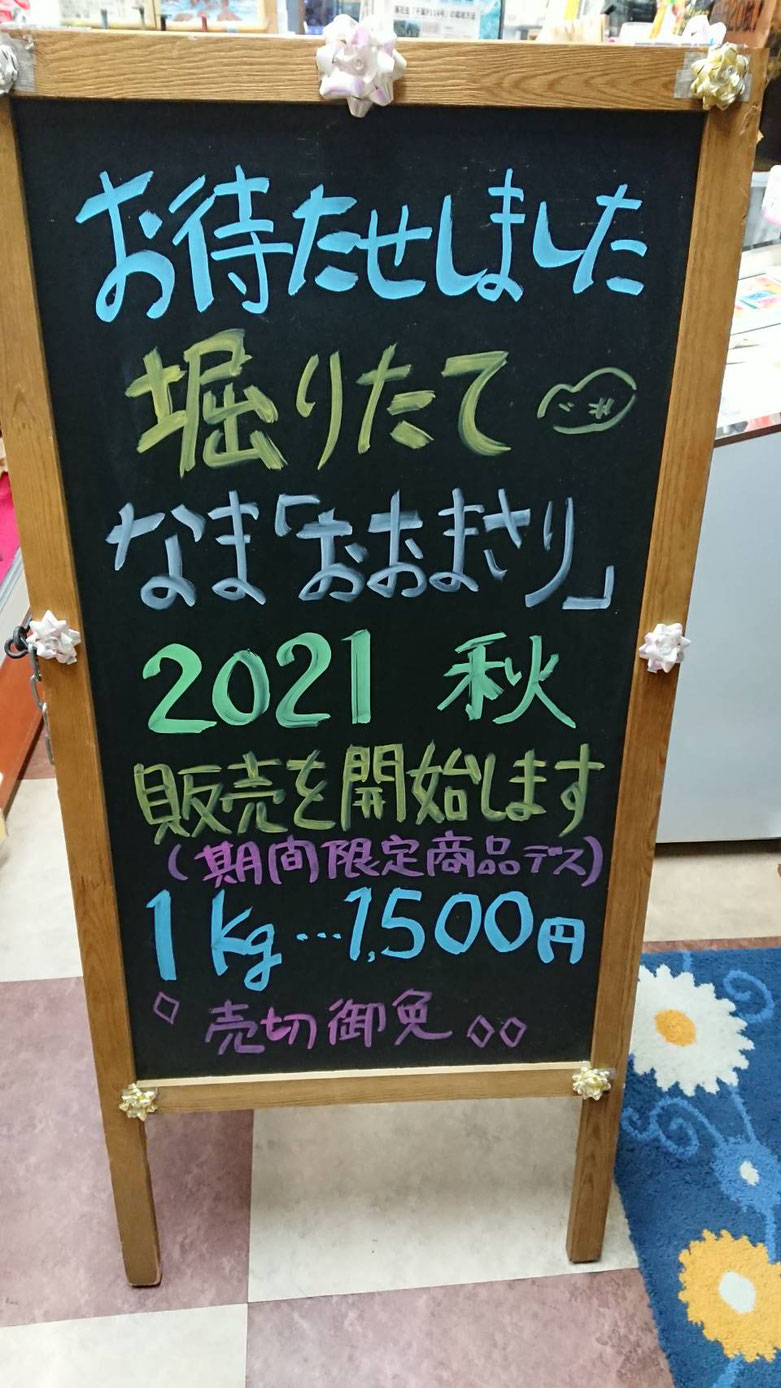 お待たせしました
堀りたて
なま「おおまさり」
2021 秋
販売を開始します
(期間限定商品デス)
1kg…1,500円
売切御免